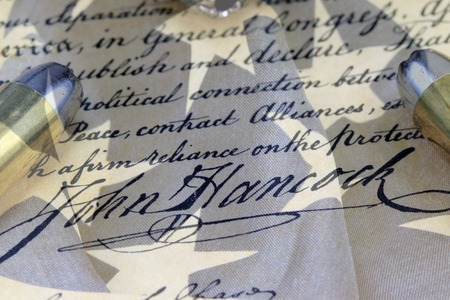 in General Congress,
publish and declare, That
political connection between
Peace, contract Alliances, es
h a firm reliance on the protect
John Hancock